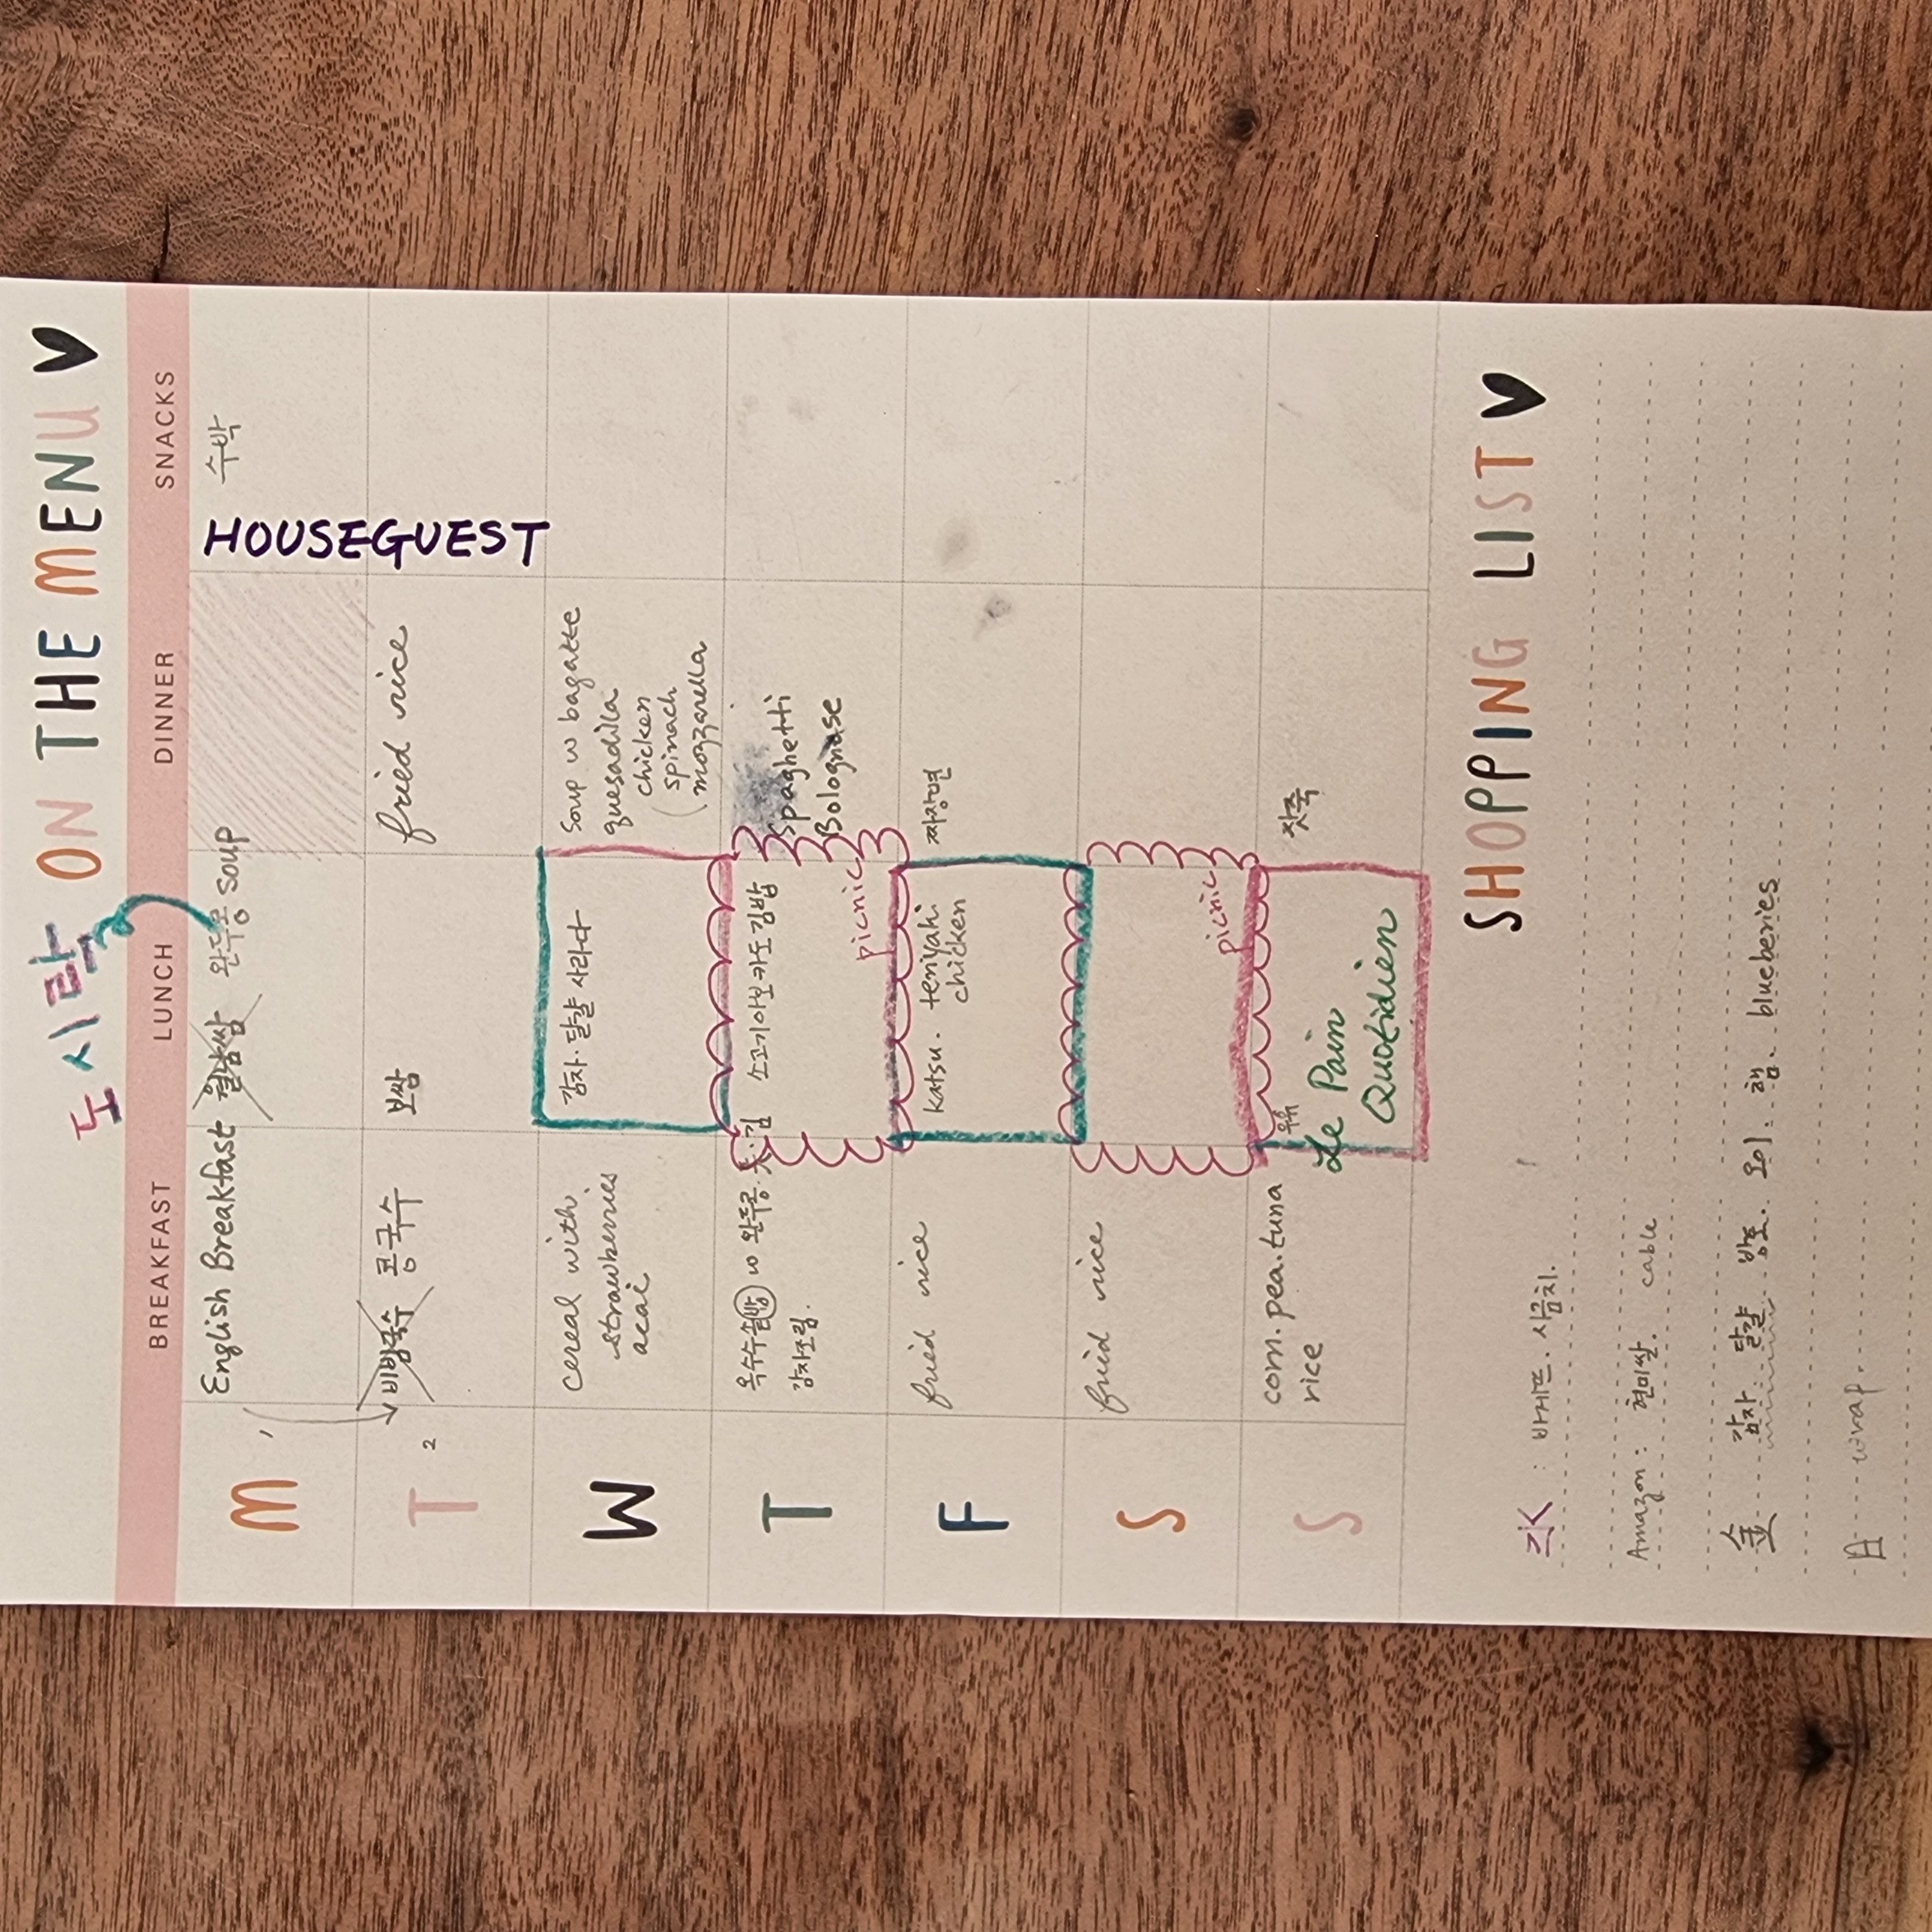 ON THE MENU
도시락
BREAKFAST LUNCH DINNER SNACKS
M 1 English Breakfast 월남쌈 완두콩 soup 수박
HOUSEGUEST
T 2 비빔국수 콩국수 보쌈 fried rice
W cereal with 감자.달걀 사라다 Soup w bagatte
strawberries quesadilla
acai chicken
(spinach
mozzarella
T 옥수수솥밥 w 완두콩. 김 소고기아보카도김밥 spaghetti
감자조림. picnic Bolognase
F fried rice katsu. teriyaki 짜장면
chicken
S fried rice picnic
S corn.pea.tuna 우유 잣죽
rice Le Pain
Quotidien
SHOPPING LIST
水 : 바게뜨. 시금치.
Amazon : 현미쌀. cable
金 감자 달걀 방토. 오이. 햄. blueberries
日 wrap.